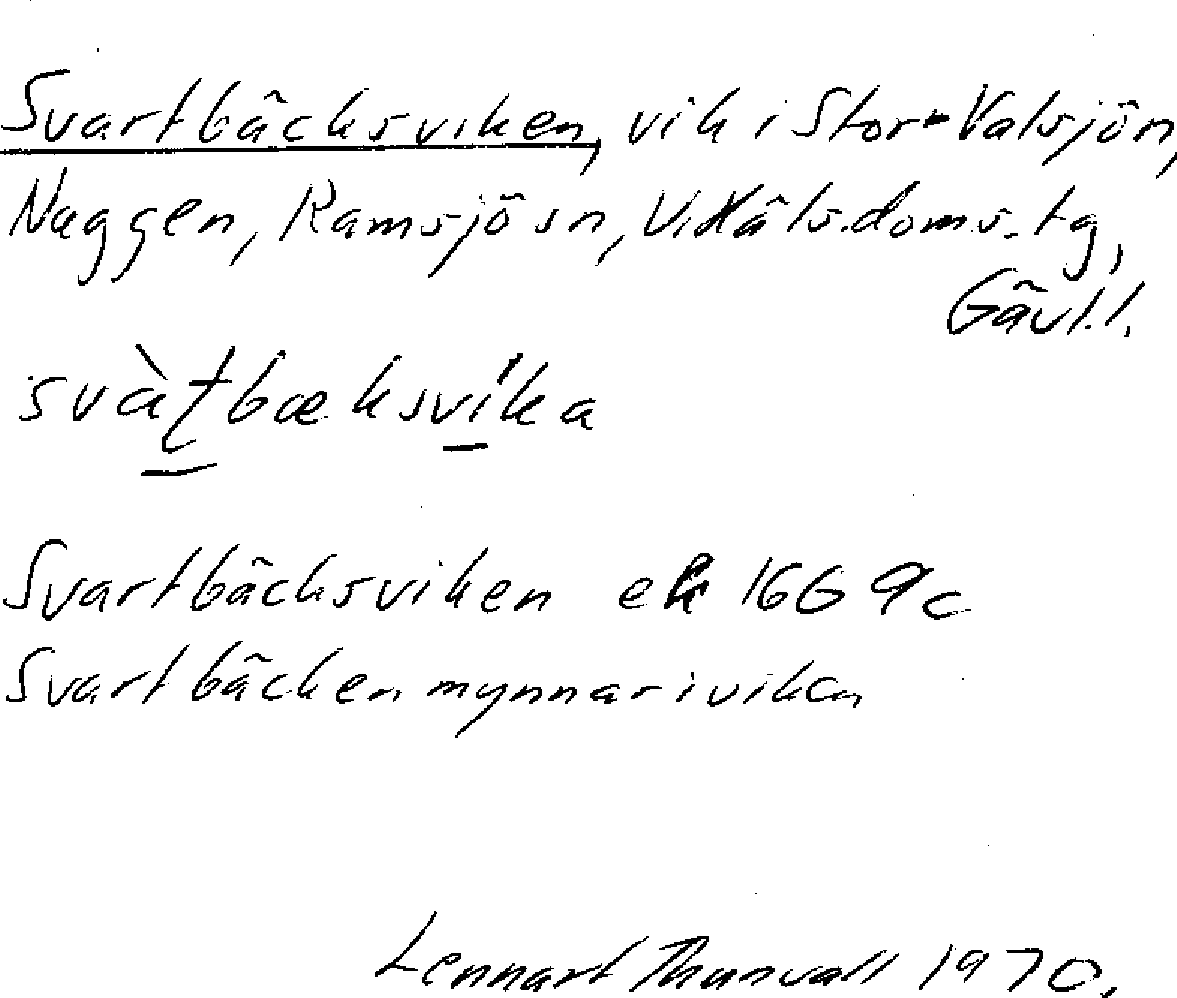 Svartbäcksviken, vik i Stor-Valsjön,
Naggen, Ramsjö sn, V. Häls. doms. tg,
Gävl. l.
svàʈbæksvíka
Svartbäcksviken ek 1669c
Svartbäcken mynnar i viken
Lennart Thunvall 1970.